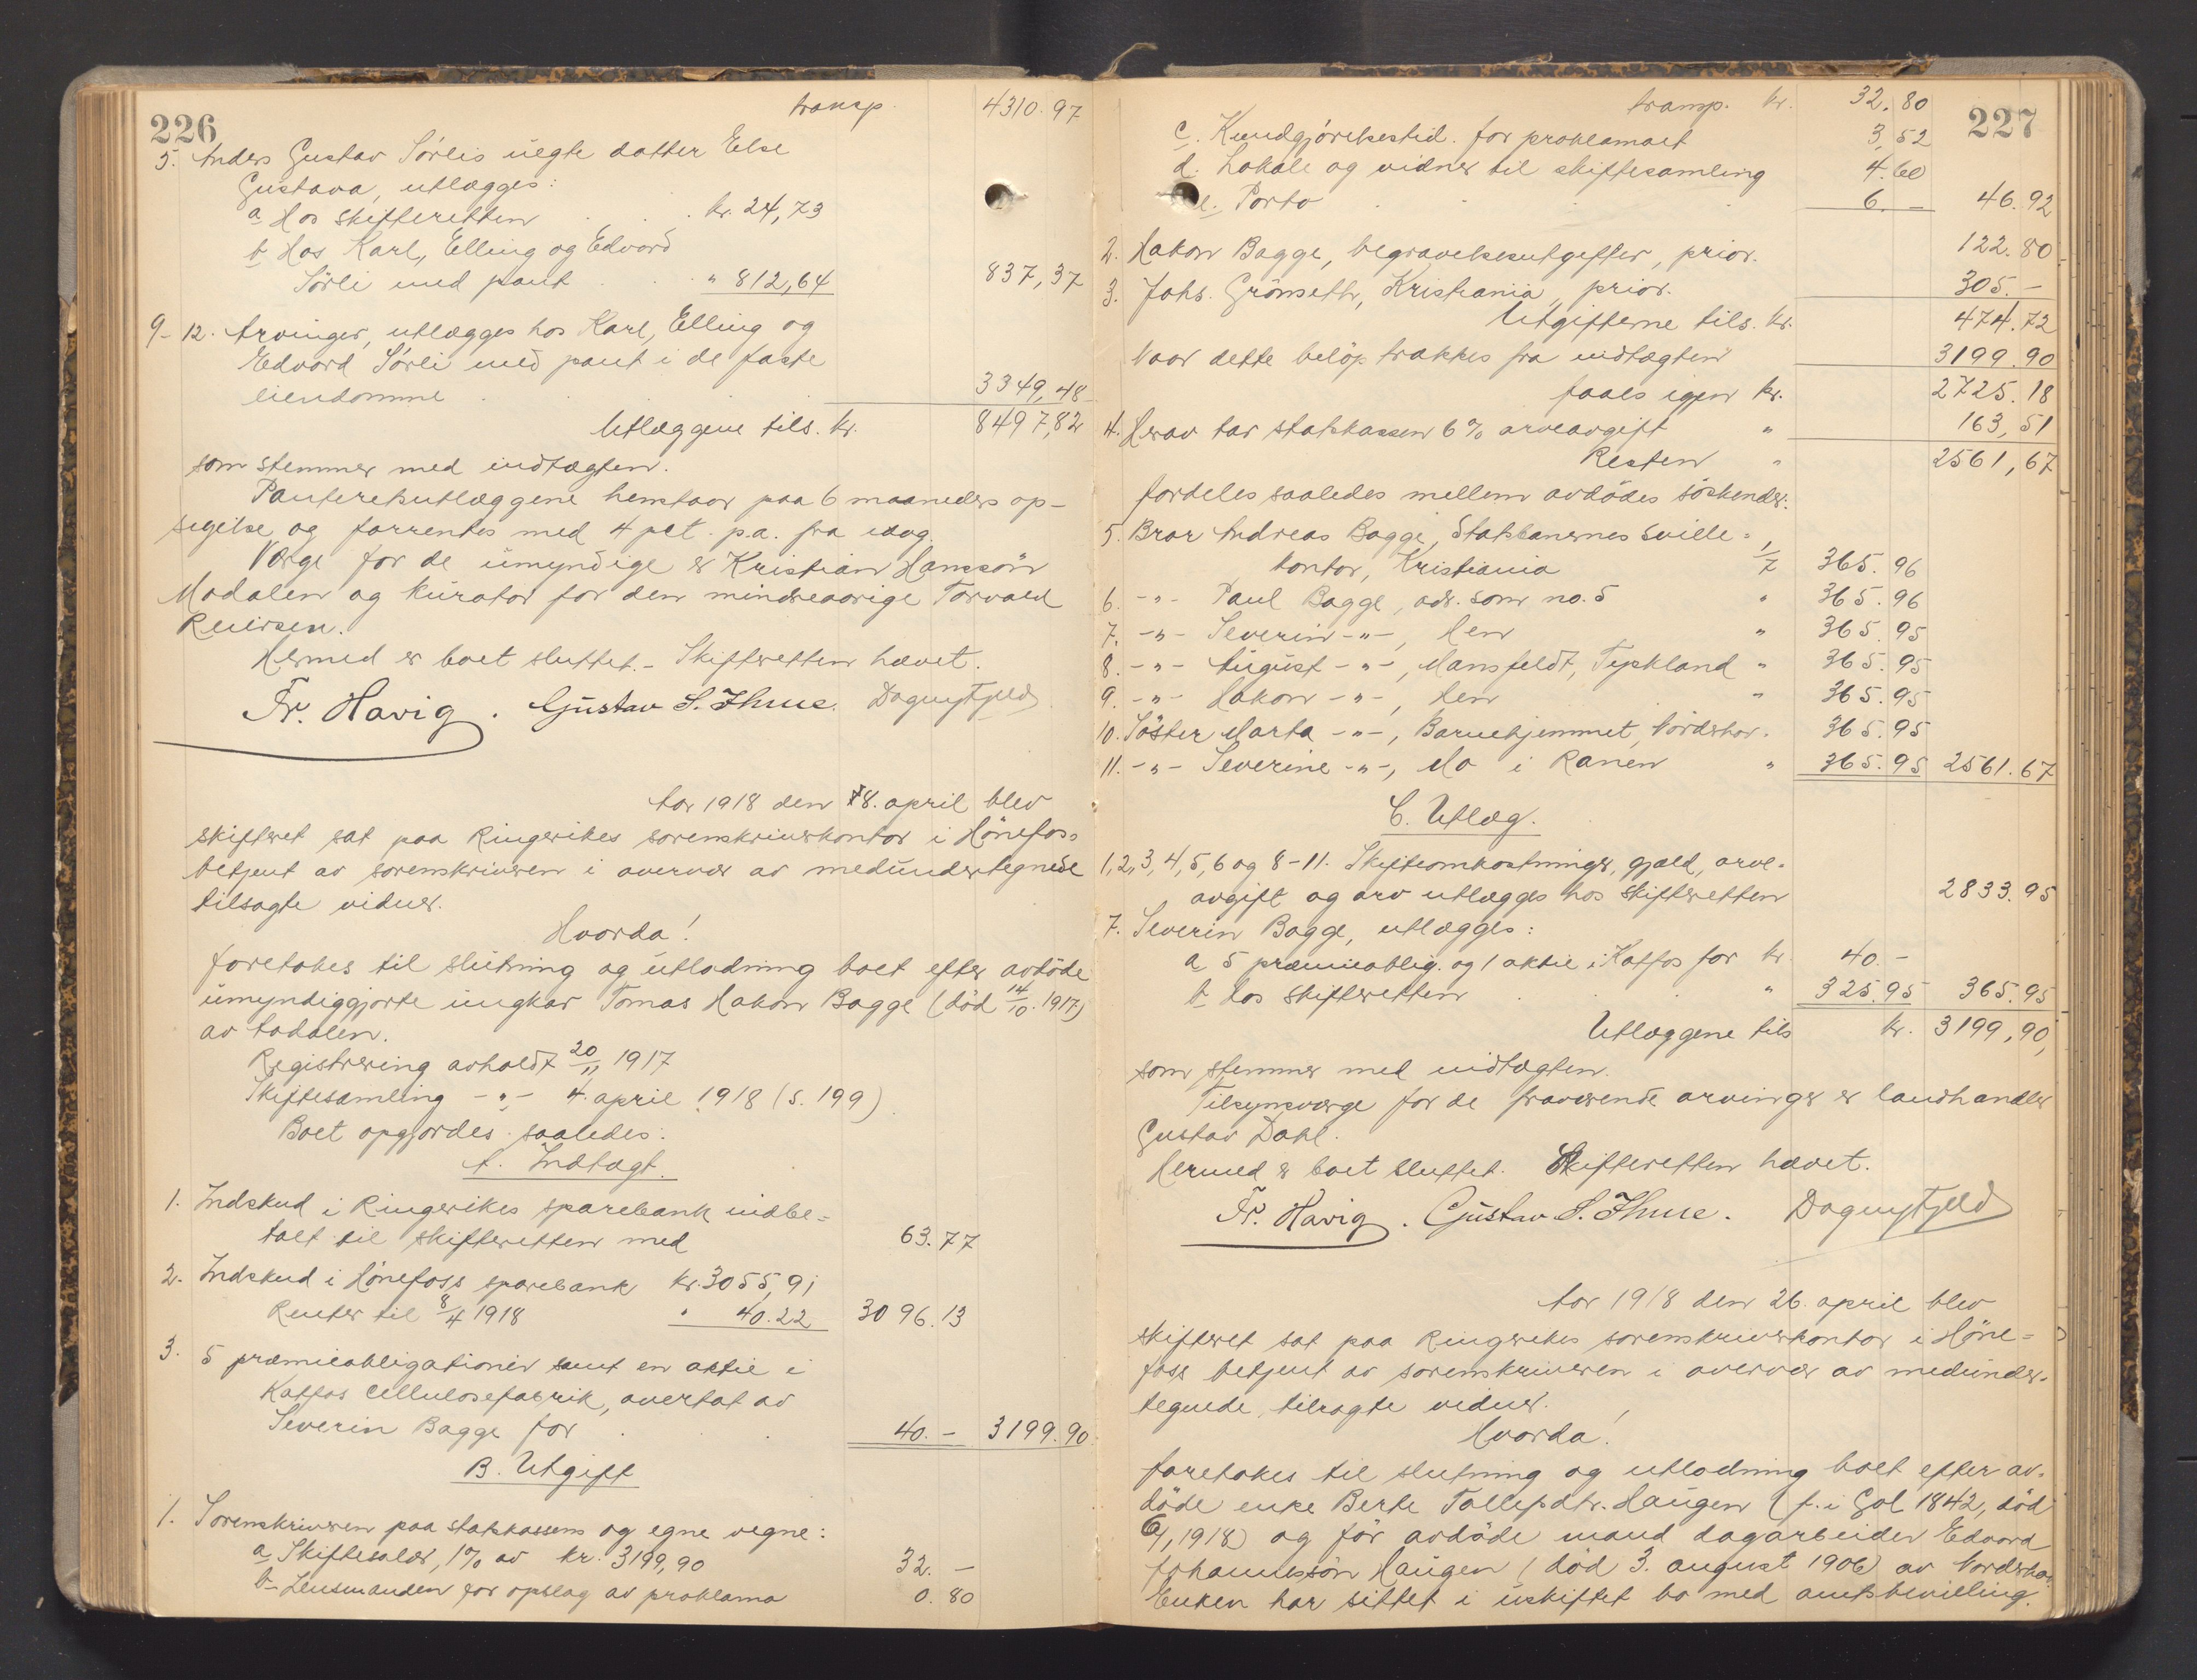 226
transp. 4310.97
5. Anders Gustav Sørlis uegte datter Else
Gustava, utlægges:
a Hos skifteretten . . . kr. 24,73
b Hos Karl, Elling og Edvard
Sørli med pant . . " 812,64 837,37
9-12. Arvinger, utlægges hos Karl, Elling og
Edvard Sørli med pant i de faste
eiendomme . . . 3349,48
Utlæggene tils. kr. 8497,82
som stemmer med indtægten.
Panteretsutlæggene henstaar paa 6 maaneders op-
sigelse og forrentes med 4 pct. p.a. fra idag.
Værge for de umyndige er Kristian Hanssøn
Modalen og kurator for den mindreaarige Torvald
Reiersen.
Hermed er boet sluttet. - Skifteretten hævet.
Fr. Havig. Gustav S. Thue. Dagny Fjeld
Aar 1918 den 8. april blev
skifteret sat paa Ringerikes sorenskriverkontor i Hønefos,
betjent av sorenskriveren i overvær av medundertegnede
tilsagte vidner.
Hvorda!
foretokes til slutning og utlodning boet efter avdøde
umyndiggjorte ungkar Tomas Hakon Bagge (død 14/10. 1917)
av Aadalen.
Registrering avholdt 20/11 1917
Skiftesamling -"- 4. april 1918 (s. 199)
Boet opgjordes saaledes:
A. Indtægt.
1. Indskud i Ringerikes sparebank indbe-
talt til skifteretten med 63.77
2. Indskud i Hønefoss sparebank kr. 3055,91
Renter til 8/4 1918 " 40.22 3096.13
3. 5 præmieobligationer samt en aktie i
Katfos cellulosefabrik, overtat av
Severin Bagge for . . 40.- 3199.90
B. Utgift
1. Sorenskriveren paa statskassens og egne vegne:
a Skiftesalær, 1% av kr. 3199,90 32.-
b Lensmanden for opslag av proklama 0.80
227
transp. kr. 32.80
c. Kundgjørelsestid. for proklamaet 3,52
d. Lokale og vidner til skiftesamling 4.60
e. Porto . . . 6.- 46.92
2. Hakon Bagge, begravelsesutgifter, prior. 122.80
3. Johs. Grønseth, Kristiania, prior. 305.-
Utgifterne tils. kr. 474.72
Naar dette beløp trækkes fra indtægten 3199.90
faaes igjen kr. 2725.18
4. Herav tar statskassen 6% arveavgift " 163,51
Resten " 2561,67
fordeles saaledes mellem avdødes søskender:
5. Bror Andreas Bagge, Statsbanernes Sville-
kontor, Kristiania 1/7 365.96
6. -"- Paul Bagge, adr. som no. 5 " 365.96
7. -"- Severin -"-, Hen " 365.95
8. -"- August -"-, Mansfeldt, Tyskland " 365.95
9. -"- Hakon -"-, Hen " 365.95
10. Søster Marta -"-, Barnehjemmet, Norderhov. 365.95
11. -"- Severine -"-, Mo i Ranen " 365.95 2561.67
C. Utlæg.
1,2,3,4,5,6 og 8-11. Skifteomkostninger, gjæld, arve-
avgift og arv utlægges hos skifteretten 2833.95
7. Severin Bagge, utlægges:
a 5 præmieoblig. og 1 aktie i Katfos for kr. 40.-
b Hos skifteretten . . . " 325.95 365.95
Utlæggene tils kr. 3199,90,
som stemmer med indtægten.
Tilsynsværge for de fraværende arvinger er landhandler
Gustav Dahl.
Hermed er boet sluttet. Skifteretten hævet.
Fr. Havig. Gustav S. Thue. Dagny Fjeld
Aar 1918 den 26. april blev
skifteret sat paa Ringerikes sorenskriverkontor i Høne-
foss betjent av sorenskriveren i overvær av medunder-
tegnede, tilsagte vidner.
Hvorda!
foretokes til slutning og utlodning boet efter av-
døde enke Berte Tollefsdtr. Haugen (f. i Gol 1842, død
6/1, 1918) og før avdøde mand dagarbeider Edvard
Johannessøn Haugen (død 3. august 1906) av Norderhov.
Enken har sittet i uskiftet bo med amtsbevilling.